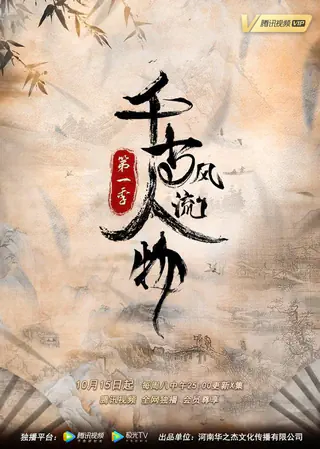 腾讯视频 VIP
千古风流人物
第一季
10月15日起 每周八中午25:00更新X集
腾讯视频 全网独播 会员尊享
独播平台: 腾讯视频 极光TV 出品单位:河南华之杰文化传播有限公司